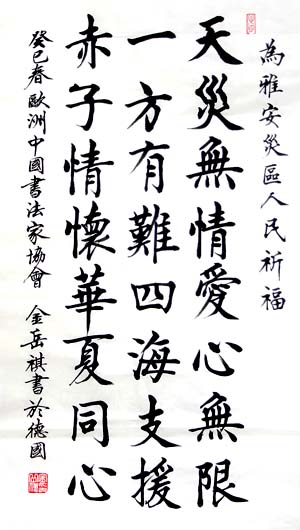 為雅安災區人民祈福
天災無情愛心無限
一方有難四海支援
赤子情懷華夏同心
癸巳春歐洲中國書法家協會 金岳祺書於德國